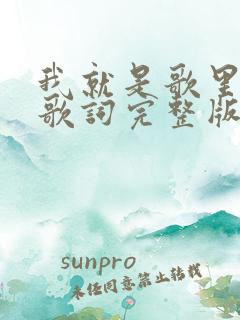 我就是歌里
歌詞完整版
sunpro
未经同意禁止转载